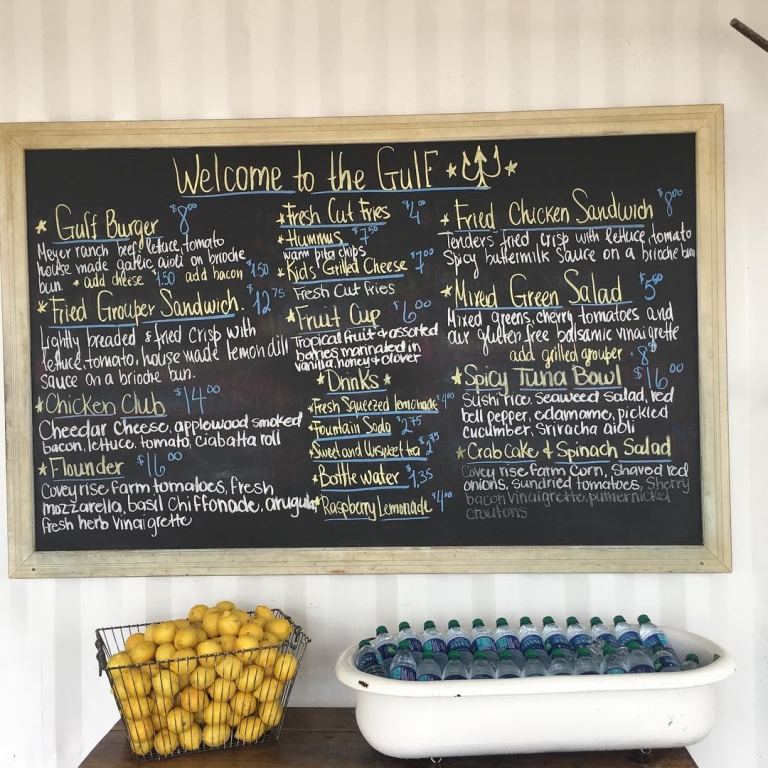 Welcome to the Gulf
Gulf Burger $8.00
Meyer ranch beef, lettuce, tomato
house made garlic aioli on brioche
bun. * add cheese $1.50 add bacon $1.50
Fried Grouper Sandwich. $12.75
Lightly breaded & fried Crisp with
lettuce, tomato, house made lemon dill
sauce on a brioche bun.
Chicken Club $14.00
Cheedar Cheese, applewood smoked
bacon, lettuce, tomato, ciabatta roll
Flounder $16.00
Covey rise farm tomatoes, fresh
mozzarella, basil Chiffonade, arugula,
fresh herb Vinaigrette
Fresh Cut Fries $4.00
Hummus $7.50
warm pita chips
Kids' Grilled Cheese $7.00
Fresh Cut Fries
Fruit Cup $6.00
Tropical fruit & assorted
marinated in
vanilla, honey &
Drinks
Fresh Squeezed lemonade $4.00
Fountain Soda $2.75
Sweet and Unsweet tea $2.75
Bottle Water $1.35
Raspberry Lemonade $4.00
Fried Chicken Sandwich $8.00
Tenders fried crisp with lettuce, tomato
Spicy buttermilk Sauce on a brioche bun
Mixed Green Salad $5.50
Mixed greens, cherry tomatoes and
our gluten free balsamic vinaigrette
add grilled grouper $8.00
Spicy Tuna Bowl $16.00
Sushi rice, seaweed salad, red
bell pepper, edamame, pickled
cucumber, Sriracha aioli
Crab Cake & Spinach Salad
Covey rise farm Corn, Shaved red
onions, sundried tomatoes, Sherry
bacon Vinaigrette, pumernickel
croutons